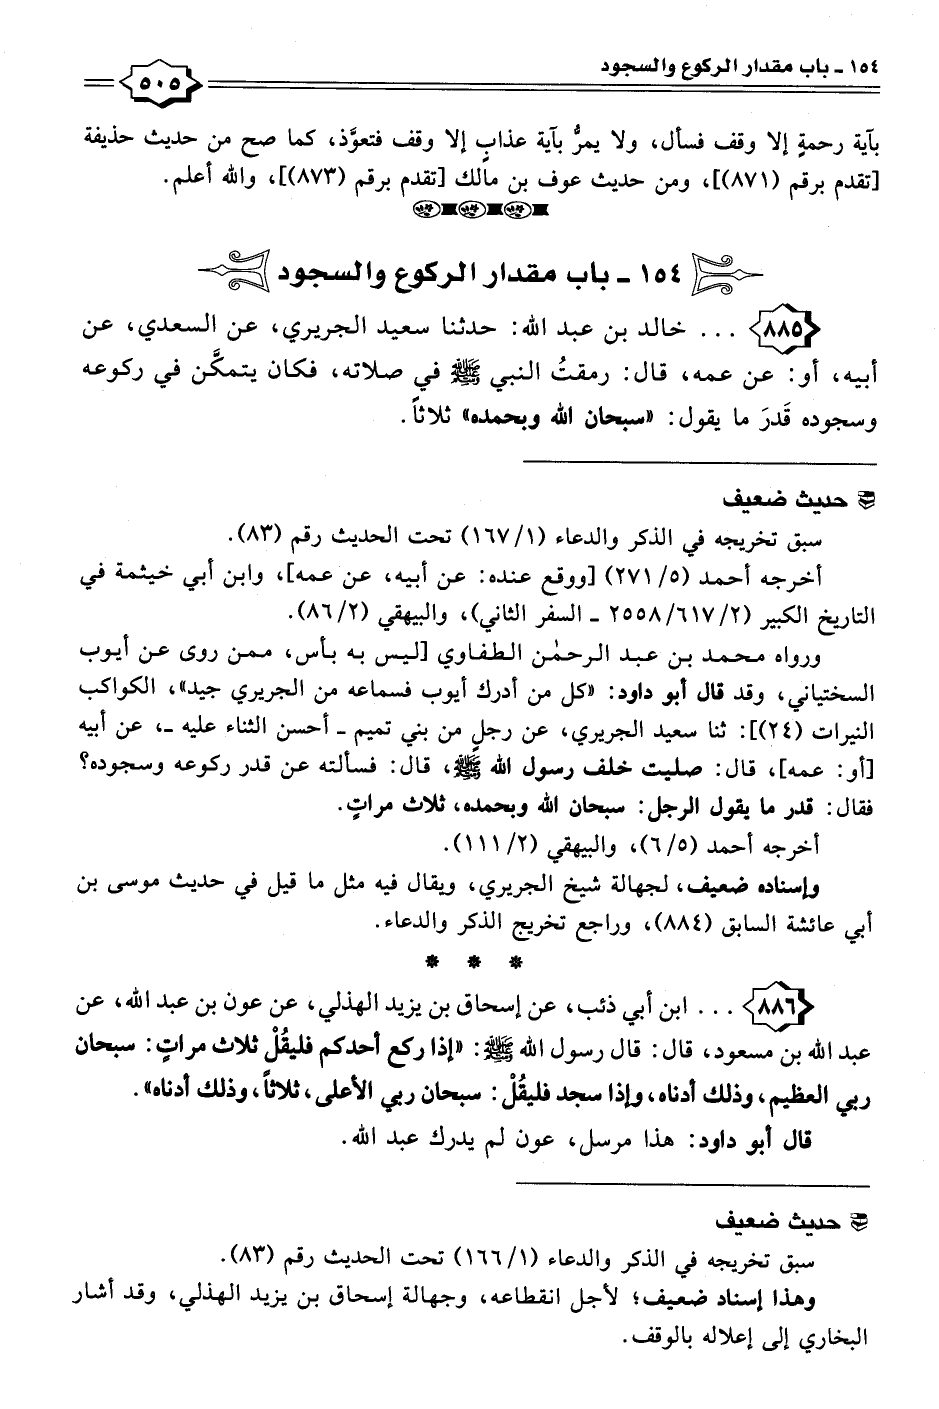 ١٥٤ - باب مقدار الركوع والسجود
٥٠٥
بآية رحمةٍ إلا وقف فسأل، ولا يمرُّ بآية عذابٍ إلا وقف فتعوَّذ، كما صح من حديث حذيفة
[تقدم برقم (٨٧١)]، ومن حديث عوف بن مالك [تقدم برقم (٨٧٣)]، والله أعلم.
١٥٤ - باب مقدار الركوع والسجود
٨٨٥ ... خالد بن عبد الله: حدثنا سعيد الجريري، عن السعدي، عن
أبيه، أو: عن عمه، قال: رمقتُ النبي ﷺ في صلاته، فكان يتمكَّن في ركوعه
وسجوده قَدرَ ما يقول: «سبحان الله وبحمده» ثلاثاً.
حديث ضعيف
سبق تخريجه في الذكر والدعاء (١/١٦٧) تحت الحديث رقم (٨٣).
أخرجه أحمد (٥/٢٧١) [ووقع عنده: عن أبيه، عن عمه]، وابن أبي خيثمة في
التاريخ الكبير (٢/٦١٧/٢٥٥٨ - السفر الثاني)، والبيهقي (٢/٨٦).
ورواه محمد بن عبد الرحمٰن الطفاوي [ليس به بأس، ممن روى عن أيوب
السختياني، وقد قال أبو داود: «كل من أدرك أيوب فسماعه من الجريري جيد»، الكواكب
النيرات (٢٤)]: ثنا سعيد الجريري، عن رجلٍ من بني تميم - أحسن الثناء عليه -، عن أبيه
[أو: عمه]، قال: صليت خلف رسول الله ﷺ، قال: فسألته عن قدر ركوعه وسجوده؟
فقال: قدر ما يقول الرجل: سبحان الله وبحمده، ثلاث مراتٍ.
أخرجه أحمد (٥/٦)، والبيهقي (٢/١١١).
وإسناده ضعيف، لجهالة شيخ الجريري، ويقال فيه مثل ما قيل في حديث موسى بن
أبي عائشة السابق (٨٨٤)، وراجع تخريج الذكر والدعاء.
* * *
٨٨٦ ... ابن أبي ذئب، عن إسحاق بن يزيد الهذلي، عن عون بن عبد الله، عن
عبد الله بن مسعود، قال: قال رسول الله ﷺ: «إذا ركع أحدكم فليقُلْ ثلاث مراتٍ: سبحان
ربي العظيم، وذلك أدناه، وإذا سجد فليقُلْ: سبحان ربي الأعلى، ثلاثاً، وذلك أدناه».
قال أبو داود: هذا مرسل، عون لم يدرك عبد الله.
حديث ضعيف
سبق تخريجه في الذكر والدعاء (١/١٦٦) تحت الحديث رقم (٨٣).
وهذا إسناد ضعيف؛ لأجل انقطاعه، وجهالة إسحاق بن يزيد الهذلي، وقد أشار
البخاري إلى إعلاله بالوقف.